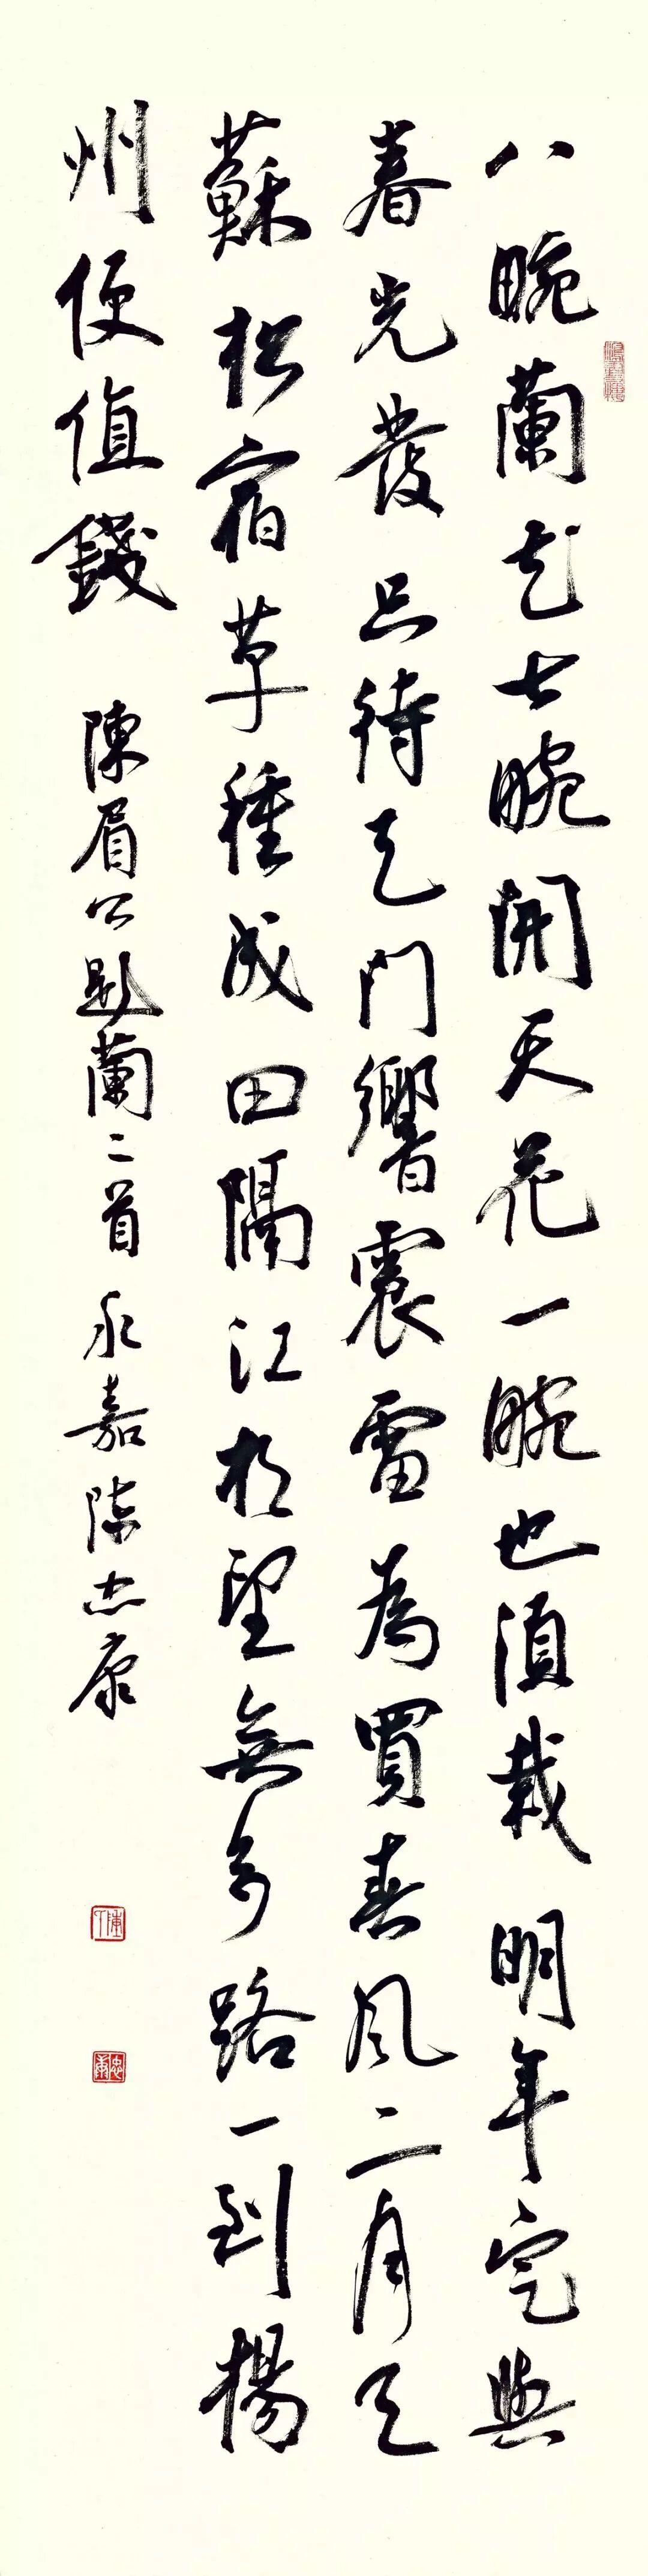 八畹蘭先七畹開天花一畹也須栽明年定與
春光發只待天門響震雷為買春風二月天
蘇松宿草種成田隔江相望無多路一到楊
州便值錢 陳眉公題蘭二首 永嘉陳忠康
忠康